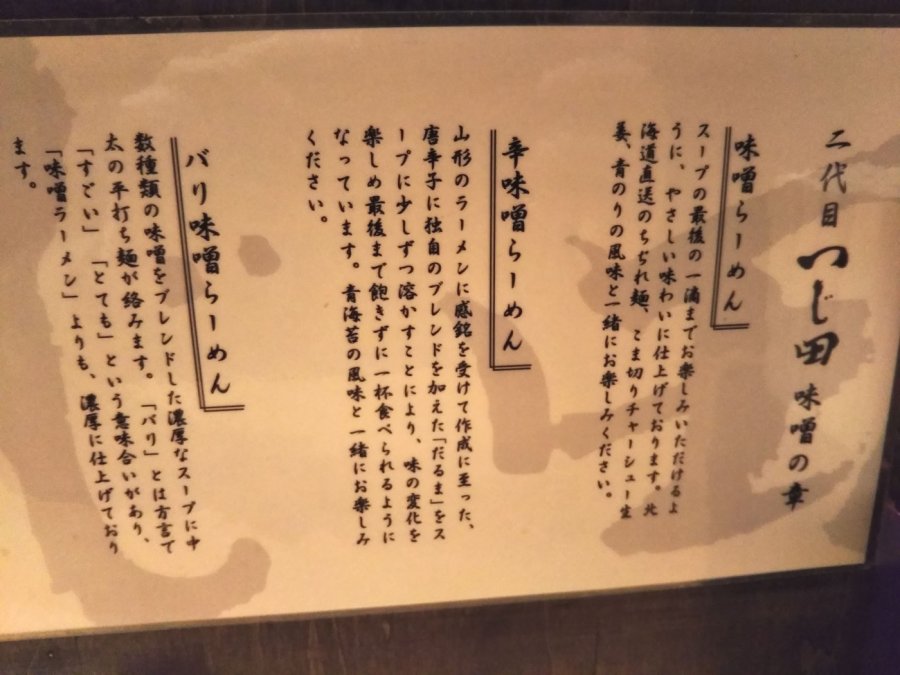 二代目 つじ田 味噌の章
味噌らーめん
スープの最後の一滴までお楽しみいただけるよ
うに、やさしい味わいに仕上げております。北
海道直送のちぢれ麺、こま切りチャーシュー生
姜、青のりの風味と一緒にお楽しみください。
辛味噌らーめん
山形のラーメンに感銘を受けて作成に至った、
唐辛子に独自のブレンドを加えた「だるま」をス
ープに少しずつ溶かすことにより、味の変化を
楽しめ最後まで飽きずに一杯食べられるように
なっています。青海苔の風味と一緒にお楽しみ
ください。
バリ味噌らーめん
数種類の味噌をブレンドした濃厚なスープに中
太の平打ち麺が絡みます。「バリ」とは方言で
「すごい」「とても」という意味合いがあり、
「味噌ラーメン」よりも、濃厚に仕上げており
ます。